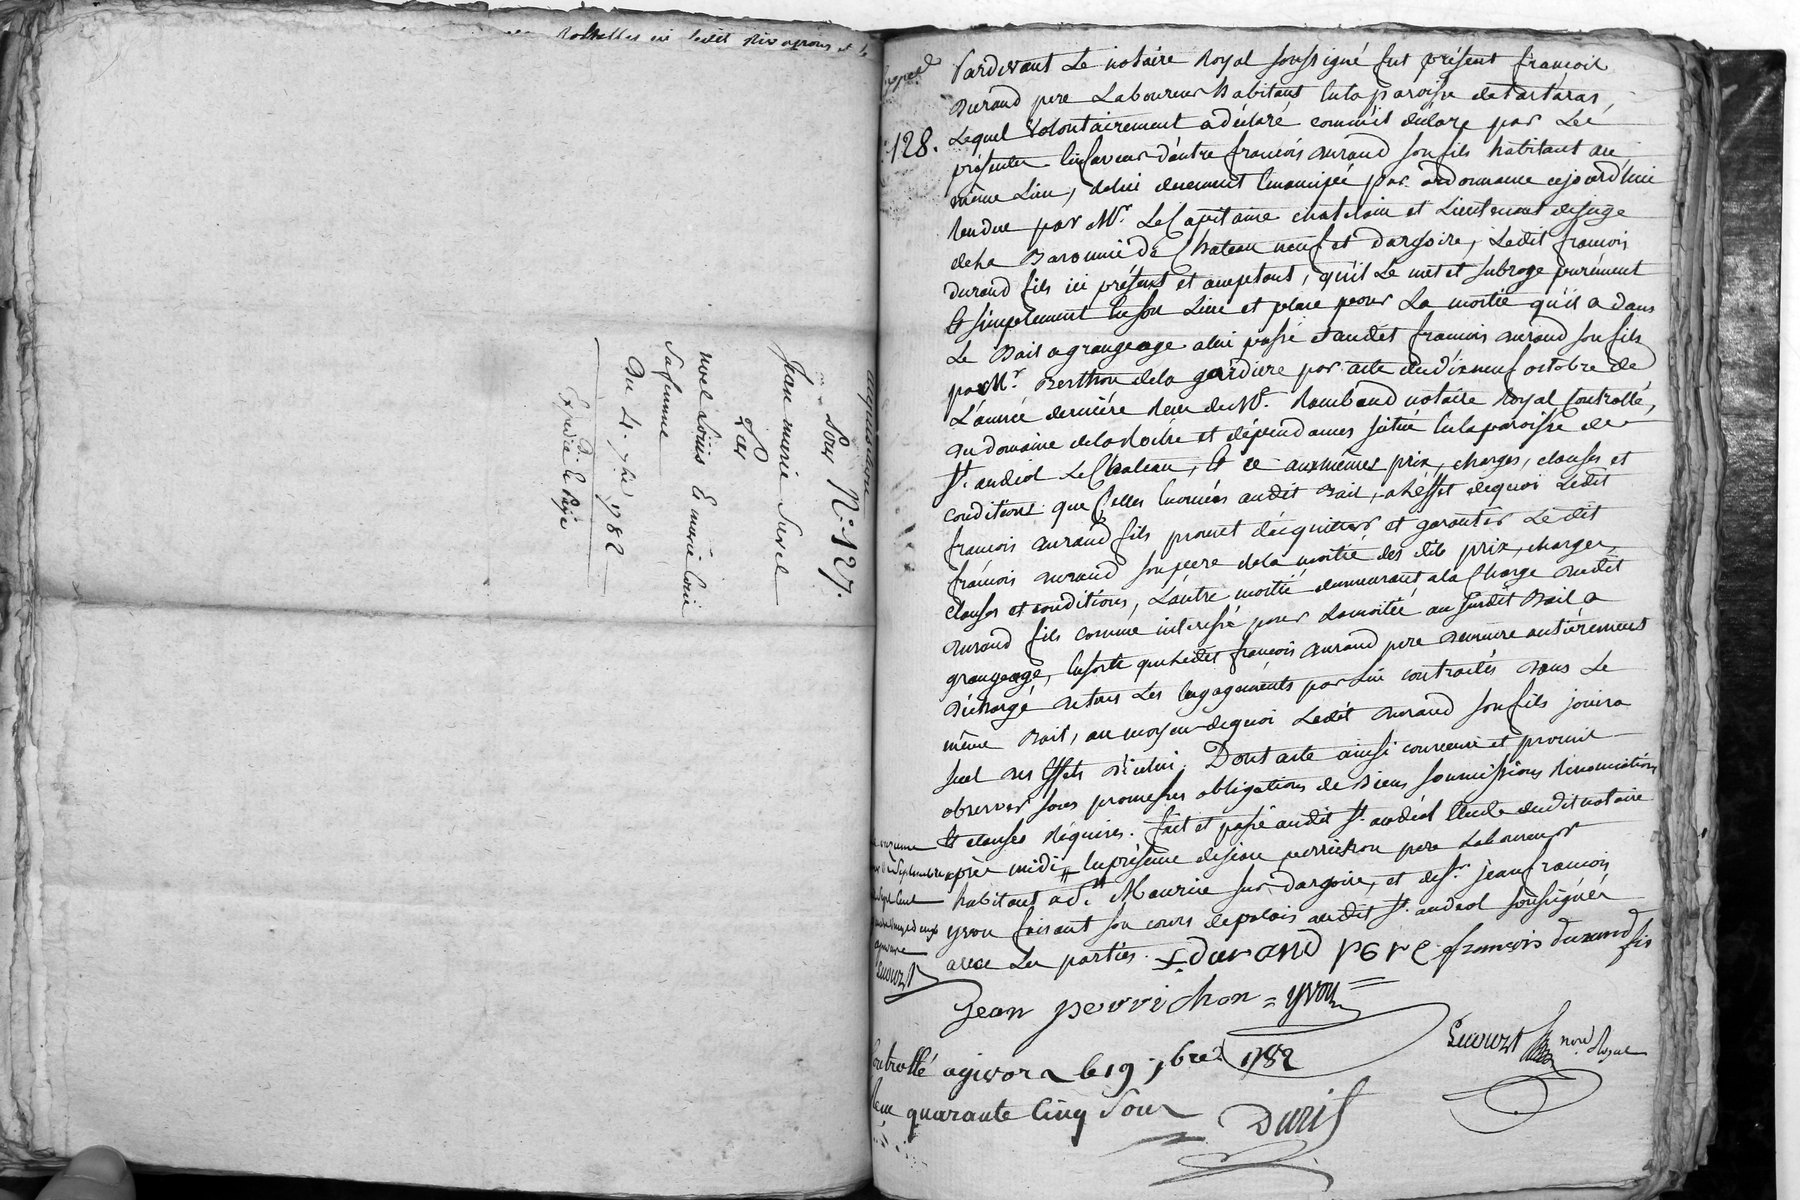 Pour N.° 127.
Jean marie
Les
noel Louis Et marie
du 4. 7bre 1782
Expédié le
128.
Pardevant Le notaire Royal soussigné fut présent francois
durand pere Laboureur habitant en la paroisse de tartaras,
Lequel volontairement a déclaré comm'il déclare par Les
présentes en faveur d'autre francois durand son fils habitant au
même Lieu, de lui duement émancipé par ordonnance cejourd'hui
Rendue par Mr. Le Capitaine chatelain et Lieutenant de juge
de la Baronnie de Chateau neuf et dargoire, Ledit francois
durand fils ici présent et acceptant, qu'il Le met et subroge purément
Et simplement En son Lieu et place pour La moitié qu'il a dans
Le Bail a grangeage a lui passé et audit francois durand son fils
par Mr. Berthon de la par acte du dixneuf octobre de
L'année derniére Recu de Me. Rambaud notaire Royal Controllé,
du domaine de la et dépendances scitué En la paroisse de
St. andeol Le Chateau, Et ce aux mêmes prix, charges, clauses et
conditions que Celles Enoncées audit Bail, a l'Effet dequoi Ledit
francois durand fils promet d'acquitter et garantir Ledit
francois durand son pere de la moitié des dits prix, charges,
clauses et conditions, L'autre moitié demeurant a la Charge dudit
durand fils comme interessé pour La moitié au susdit Bail a
grangeage, En sorte que Ledit francois durand pere demeure entiérement
déchargé de tous Les Engagements par Lui contractés dans Le
même Bail, au moyen dequoi Ledit durand son fils jouira
seul des Effets d'icelui. Dont acte ainsi convenu et promis
observer sous promesses obligations de Biens soumissions Renonciations
Et clauses Réquises. fait et passé audit St. andéol Etude dudit notaire
aprés midi En présence de jean perrichon pere Laboureur
habitant a St. Maurice sur dargoire, et de Sr. jean francois
yvon faisant son cours de palais audit St. andeol soussignés
avec Les parties. f durand pere françois durand fils
Jean perrichon = yvon =
Controllé a givors Le 19 7bre 1782
Recu quarante Cinq sous